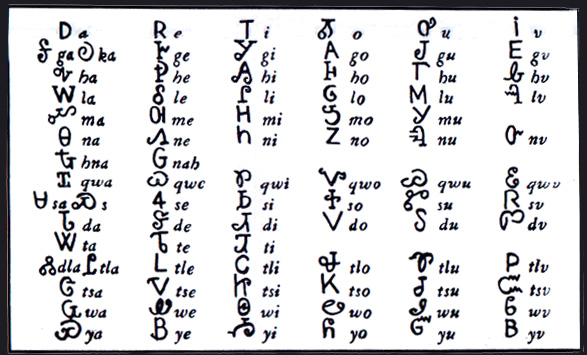 Ꭰ a Ꭱ e Ꭲ i Ꭳ o Ꭴ u Ꭵ v
Ꭶ ga Ꭷ ka Ꭸ ge Ꭹ gi Ꭺ go Ꭻ gu Ꭼ gv
Ꭽ ha Ꭾ he Ꭿ hi Ꮀ ho Ꮁ hu Ꮂ hv
Ꮃ la Ꮄ le Ꮅ li Ꮆ lo Ꮇ lu Ꮈ lv
Ꮉ ma Ꮊ me Ꮋ mi Ꮌ mo Ꮍ mu
Ꮎ na Ꮑ ne Ꮒ ni Ꮓ no Ꮔ nu Ꮕ nv
Ꮏ hna Ꮐ nah
Ꮖ qwa Ꮗ qwc Ꮘ qwi Ꮙ qwo Ꮚ qwu Ꮛ qwv
Ꮜ sa Ꮝ s Ꮞ se Ꮟ si Ꮠ so Ꮡ su Ꮢ sv
Ꮣ da Ꮥ de Ꮧ di Ꮩ do Ꮪ du Ꮫ dv
Ꮤ ta Ꮦ te Ꮨ ti
Ꮬ dla Ꮭ tla Ꮮ tle Ꮯ tli Ꮰ tlo Ꮱ tlu Ꮲ tlv
Ꮳ tsa Ꮴ tse Ꮵ tsi Ꮶ tso Ꮷ tsu Ꮸ tsv
Ꮹ wa Ꮺ we Ꮻ wi Ꮼ wo Ꮽ wu Ꮾ wv
Ꮿ ya Ᏸ ye Ᏹ yi Ᏺ yo Ᏻ yu Ᏼ yv